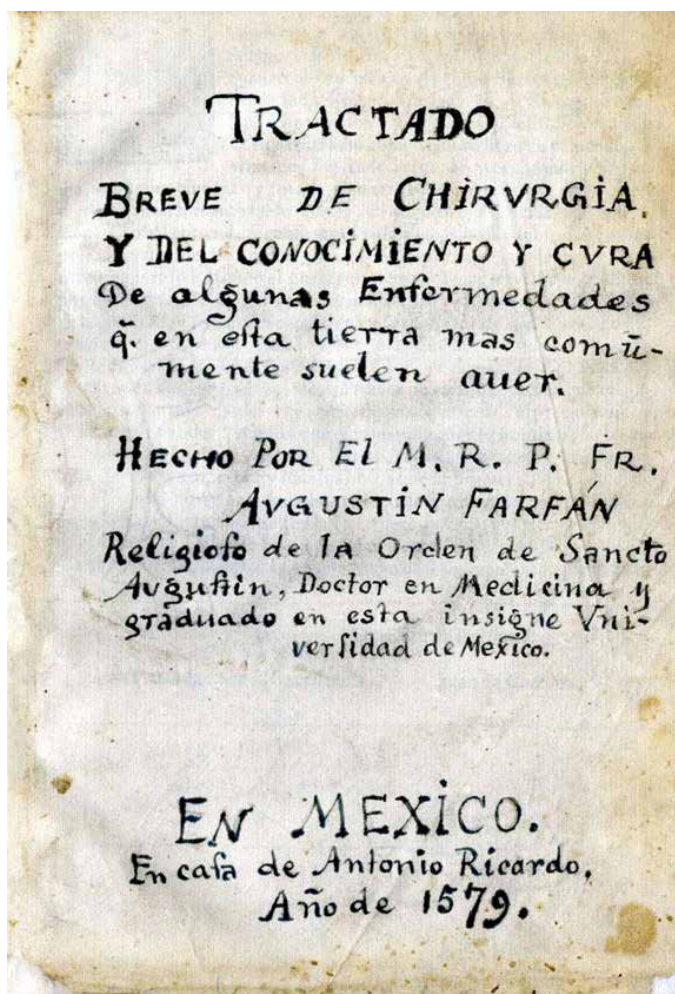 TRACTADO
BREVE DE CHIRVRGIA.
Y DEL CONOCIMIENTO Y CVRA
De algunas Enfermedades
q̃. en eſta tierra mas comũ-
mente suelen auer.
HECHO POR El M. R. P. FR.
AVGUSTIN FARFÁN
Religioſo de la Orden de Sancto
Avguſtin, Doctor en Medicina y
graduado en esta insigne Vni-
verſidad de Mexico.
EN MEXICO.
En caſa de Antonio Ricardo.
Año de 1579.